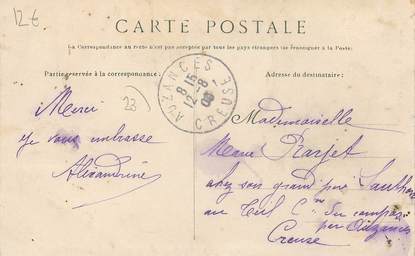 12€
CARTE POSTALE
La Correspondance au recto n'est pas acceptée par tous les pays étrangers (se renseigner à la Poste)
Partie réservée à la correspondance:
Adresse du destinataire:
AUZANCES
8 15
12-8
08
CREUSE
Merci
23
je vous embrasse
Alexandrine
Mademoiselle
Marie
chez son grand père
au
par Auzances
Creuse